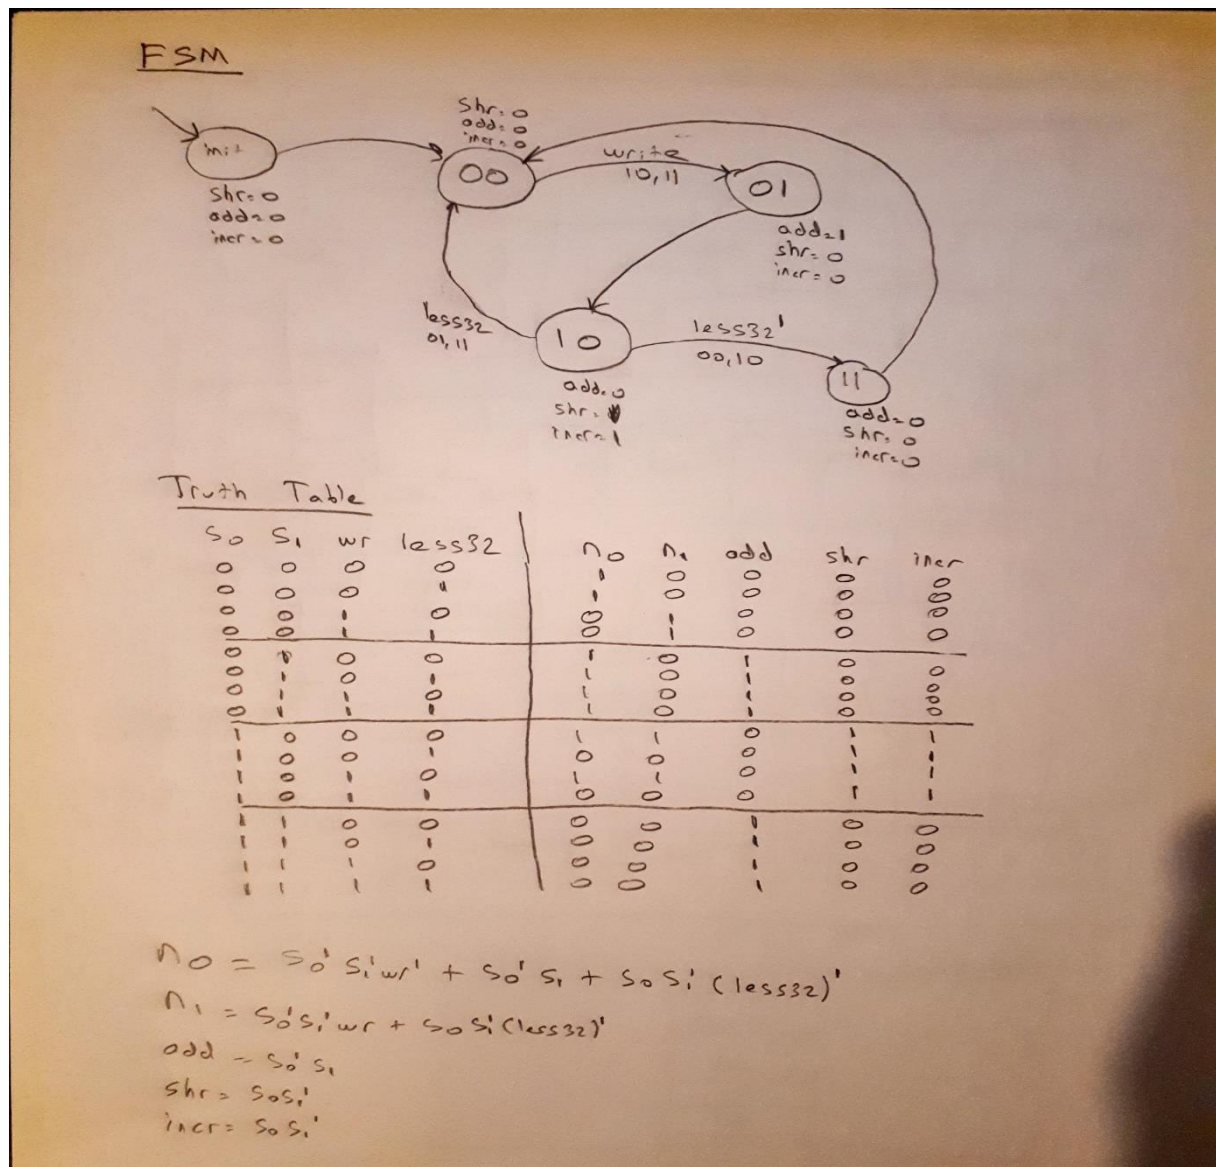 FSM
init
shr=0
add=0
incr=0
shr=0
add=0
incr=0
00
write
10,11
01
add=1
shr=0
incr=0
less32
01,11
10
add=0
shr=
incr=1
less32'
00,10
11
add=0
shr=0
incr=0
Truth Table
S0 S1 wr less32 n0 n1 add shr incr
0 0 0 0 1 0 0 0 0
0 0 0 1 1 0 0 0 0
0 0 1 0 0 1 0 0 0
0 0 1 1 0 1 0 0 0
0 1 0 0 1 0 1 0 0
0 1 0 1 1 0 1 0 0
0 1 1 0 1 0 1 0 0
0 1 1 1 1 0 1 0 0
1 0 0 0 1 1 0 1 1
1 0 0 1 0 0 0 1 1
1 0 1 0 1 1 0 1 1
1 0 1 1 0 0 0 1 1
1 1 0 0 0 0 1 0 0
1 1 0 1 0 0 1 0 0
1 1 1 0 0 0 1 0 0
1 1 1 1 0 0 1 0 0
n0 = S0'S1'wr' + S0'S1 + S0S1'(less32)'
n1 = S0'S1'wr + S0S1'(less32)'
add = S0'S1
shr = S0S1'
incr = S0S1'